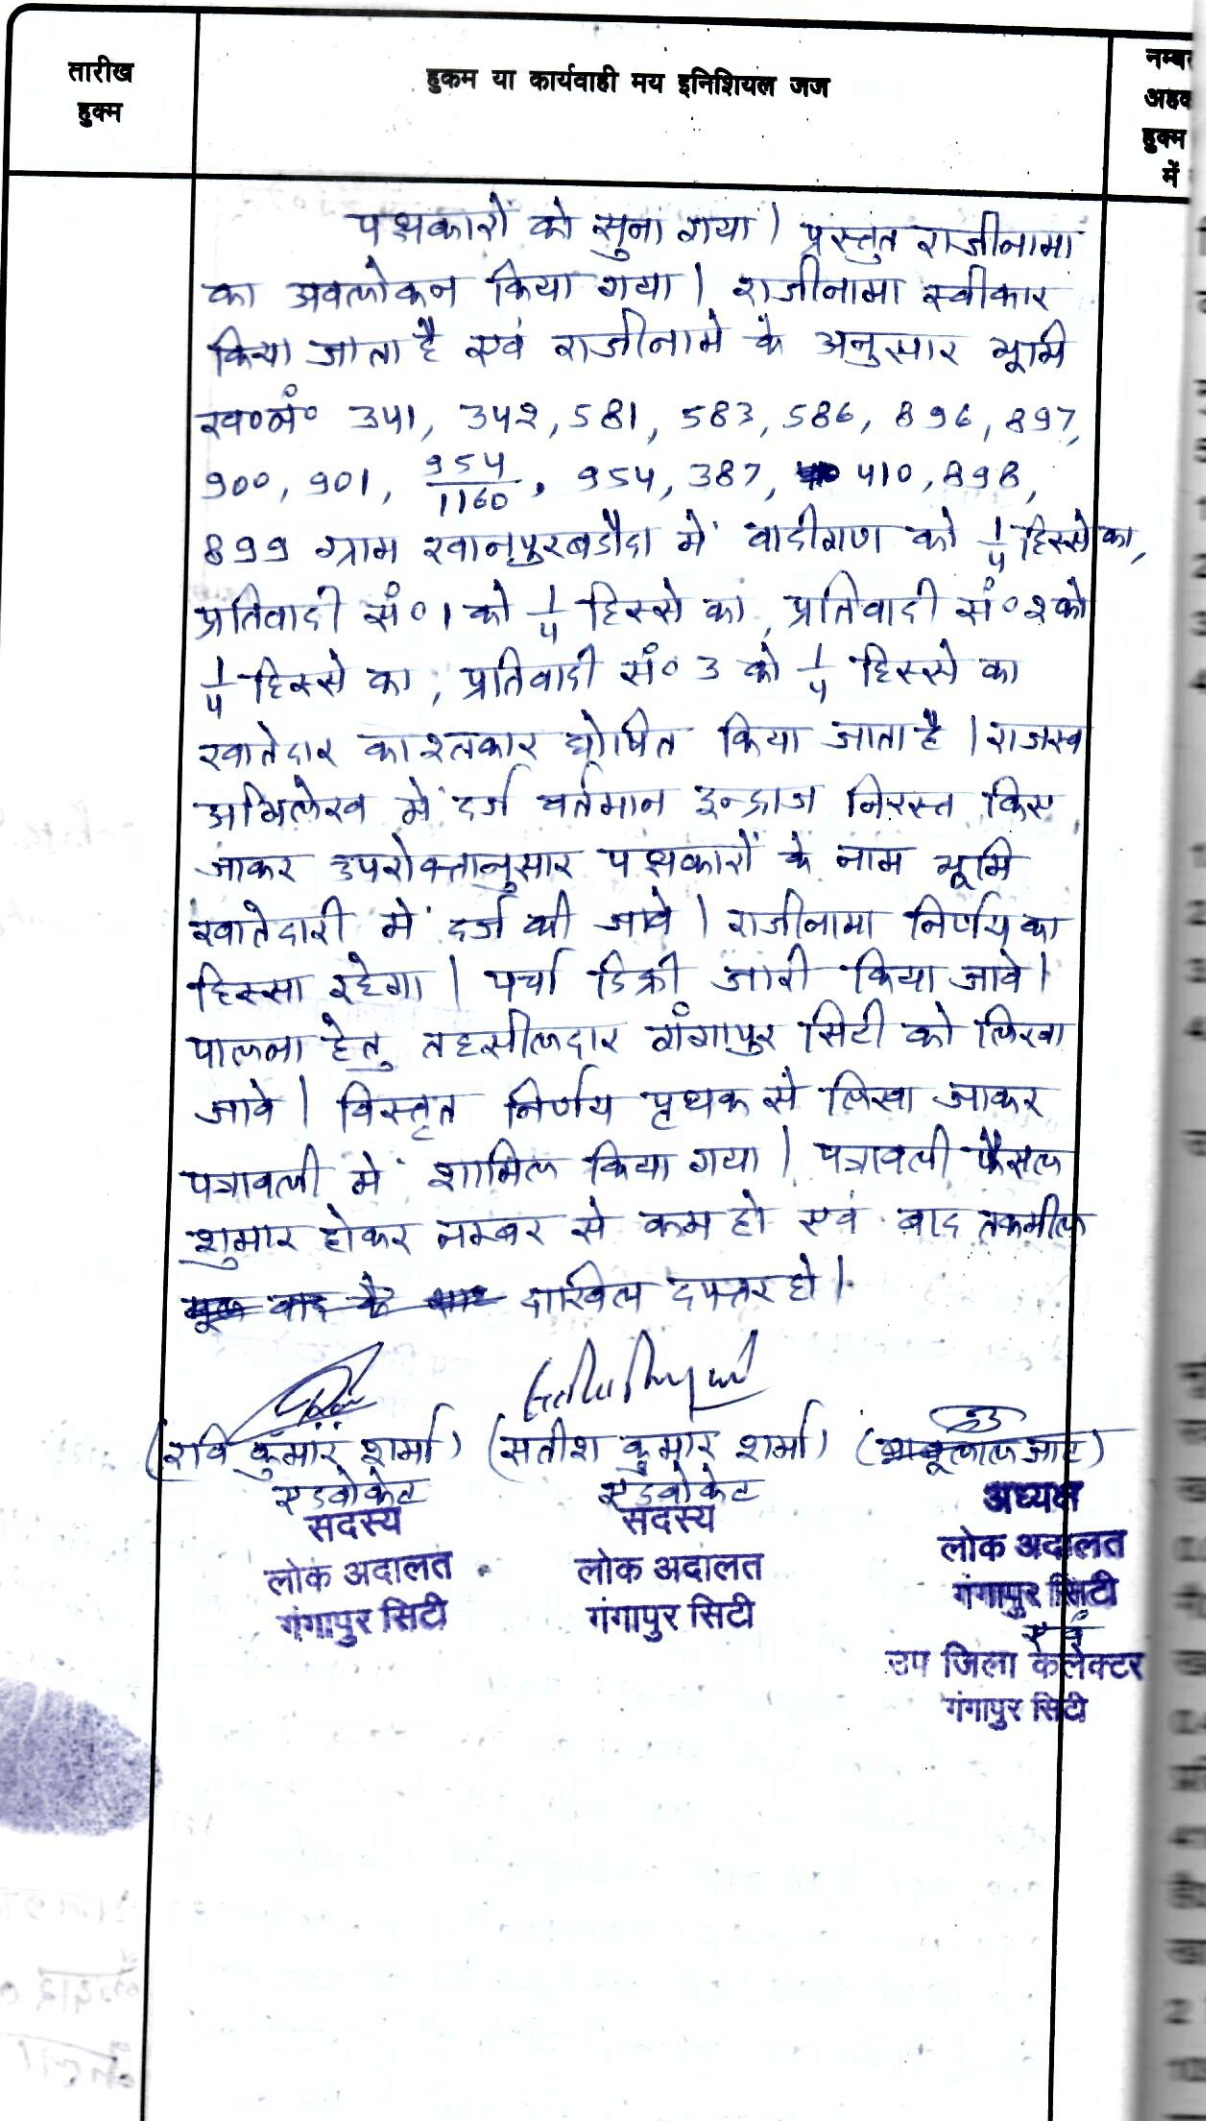 तारीख
हुक्म
हुकम या कार्यवाही मय इनिशियल जज
हुक्म
में
पक्षकारों को सुना गया। प्रस्तुत राजीनामा
का अवलोकन किया गया। राजीनामा स्वीकार
किया जाता है एवं राजीनामे के अनुसार भूमि
ख०नं० 341, 342, 581, 583, 586, 896, 897,
900, 901, 954/1160, 954, 387, 410, 898,
899 ग्राम खानपुरबडौदा में वादीगण को 1/4 हिस्से का,
प्रतिवादी सं० 1 को 1/4 हिस्से का, प्रतिवादी सं० 2 को
1/4 हिस्से का, प्रतिवादी सं० 3 को 1/4 हिस्से का
खातेदार काश्तकार घोषित किया जाता है। राजस्व
अभिलेख में दर्ज वर्तमान इन्द्राज निरस्त किए
जाकर उपरोक्तानुसार पक्षकारों के नाम भूमि
खातेदारी में दर्ज की जावे। राजीनामा निर्णय का
हिस्सा रहेगा। पर्चा डिक्री जारी किया जावे।
पालना हेतु तहसीलदार गंगापुर सिटी को लिखा
जावे। विस्तृत निर्णय पृथक से लिखा जाकर
पत्रावली में शामिल किया गया। पत्रावली फैसल
शुमार होकर नम्बर से कम हो एवं बाद तकमील
दाखिल दफ्तर हो।
(रवि कुमार शर्मा) (सतीश कुमार शर्मा)
एडवोकेट एडवोकेट अध्यक्ष
सदस्य सदस्य लोक अदालत
लोक अदालत लोक अदालत गंगापुर सिटी
गंगापुर सिटी गंगापुर सिटी एवं
उप जिला कलेक्टर
गंगापुर सिटी